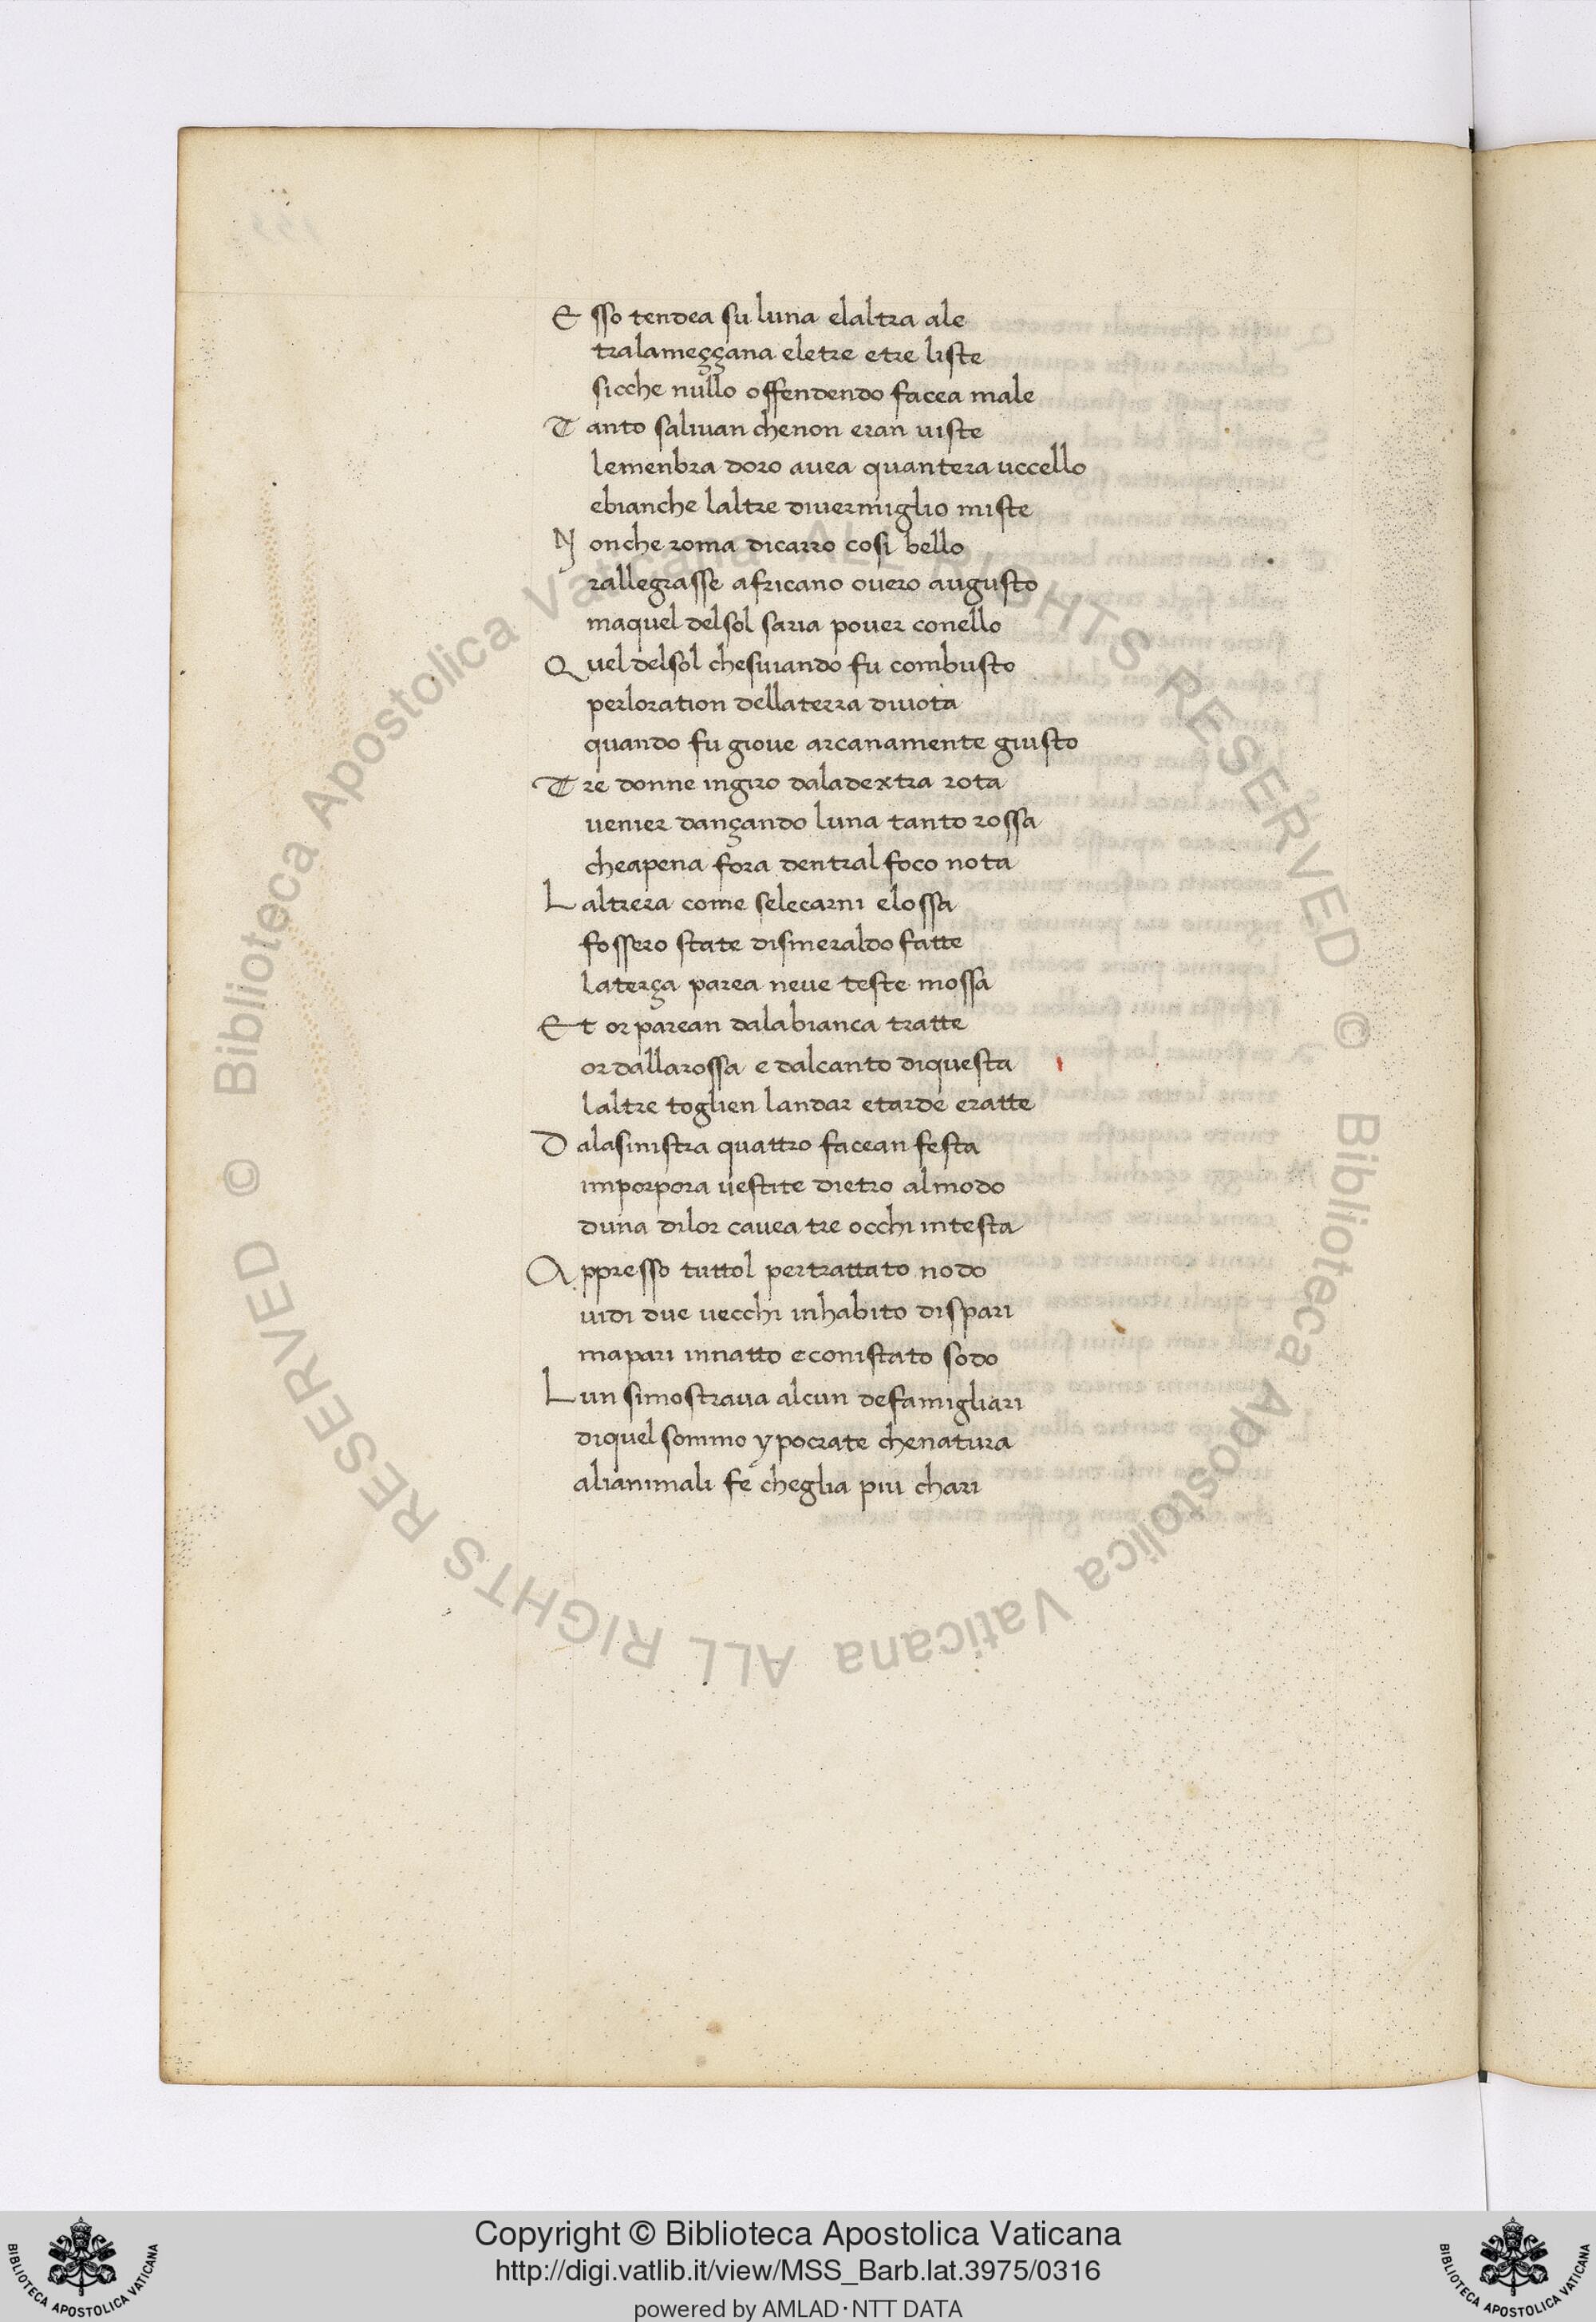 E sso tendea su luna elaltra ale
tralameççana eletre etre liste
sicche nullo offendendo facea male
T anto salivan chenon eran viste
lemenbra doro avea quantera uccello
ebianche laltre divermiglio miste
N onche roma dicarro cosi bello
rallegrasse africano overo augusto
maquel delsol saria pover conello
Q uel delsol chesviando fu combusto
perloration dellaterra divota
quando fu giove arcanamente giusto
T re donne ingiro daladextra rota
venier dançando luna tanto rossa
cheapena fora dentral foco nota
L altrera come selecarni elossa
fossero state dismeraldo fatte
laterça parea neve teste mossa
E t or parean dalabianca tratte
or dallarossa e dalcanto diquesta
laltre toglien landar etarde eratte
D alasinistra quattro facean festa
imporpora vestite dietro almodo
duna dilor cavea tre occhi intesta
A ppresso tuttol pertrattato nodo
vidi due vecchi inhabito dispari
mapari innatto econistato sodo
L un simostrava alcun defamigliari
diquel sommo ypocrate chenatura
alianimali fe cheglia piu chari
© Biblioteca Apostolica Vaticana ALL RIGHTS RESERVED © Biblioteca Apostolica Vaticana ALL RIGHTS RESERVED
Copyright © Biblioteca Apostolica Vaticana
http://digi.vatlib.it/view/MSS_Barb.lat.3975/0316
powered by AMLAD·NTT DATA
BIBLIOTECA APOSTOLICA VATICANA
BIBLIOTECA APOSTOLICA VATICANA